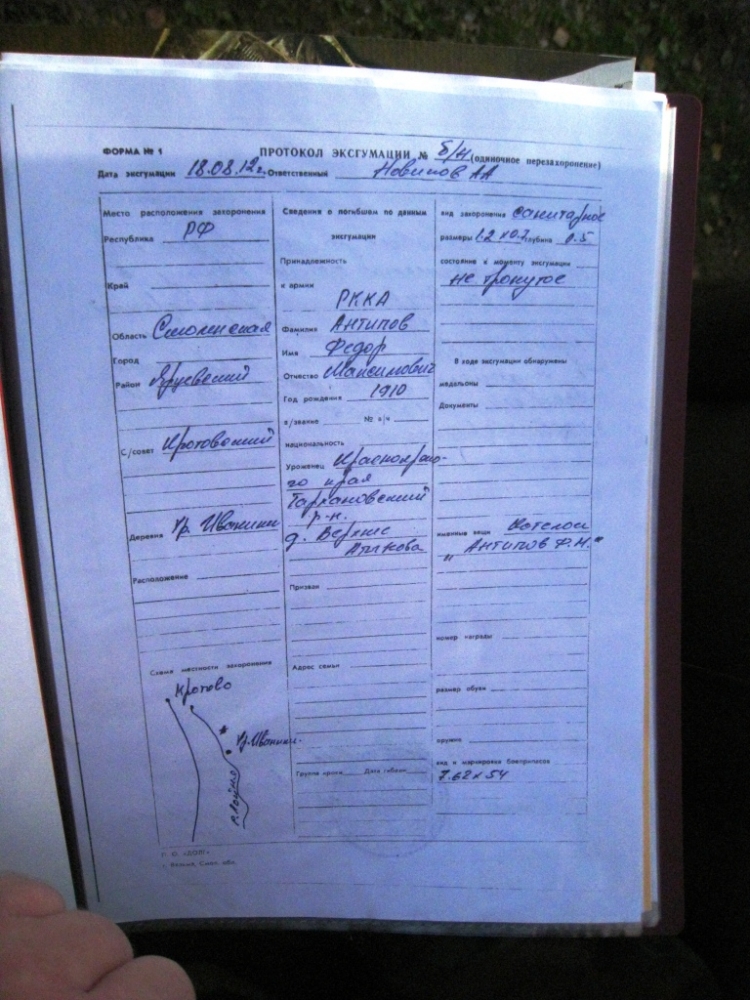 ФОРМА № 1
ПРОТОКОЛ ЭКСГУМАЦИИ № б/н (одиночное перезахоронение)
Дата эксгумации 18.08.12г. Ответственный Новиков АА
Место расположения захоронения
Республика РФ
Край
Область Смоленская
Город
Район
С/совет Кротовский
Деревня Ур. Иваники
Расположение
Схема местности захоронения
Кротово
Ур. Иваники
Сведения о погибшем по данным
эксгумации
Принадлежность
к армии
РККА
Фамилия Антипов
Имя Федор
Отчество Максимович
Год рождения 1910
в/звание № в/ч
национальность
Уроженец Красноярско-
го края
Тархановский
р-н.
д. Верхне
Ачикова
Призван
Адрес семьи
Группа крови Дата гибели
вид захоронения санитарное
размеры 1.2 х 0.7 глубина 0.5
состояние к моменту эксгумации
не тронутое
В ходе эксгумации обнаружены
медальоны
Документы
именные вещи Котелок
„Антипов Ф.М."
номер награды
размер обуви
оружие
вид и маркировка боеприпасов
7.62 х 54
П. О. «ДОЛГ»
г. Вязьма, Смол. обл.